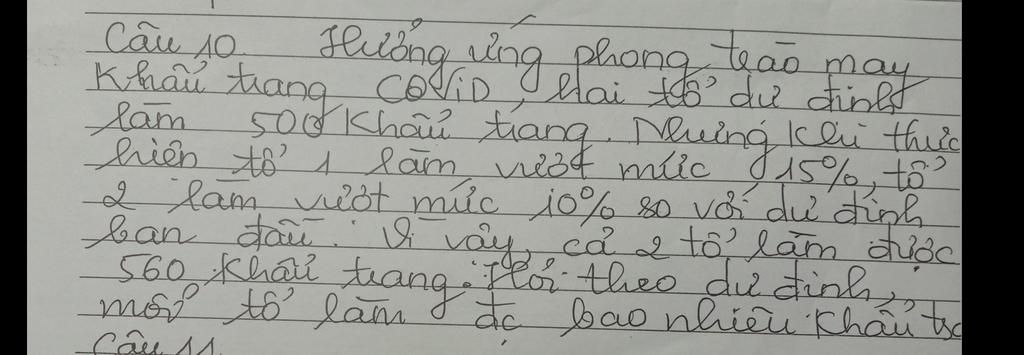 Câu 10. Hưởng ứng phong trào may
Khẩu trang COVID, Hai tổ dự định
làm 500 Khẩu trang. Nhưng khi thực
hiện tổ 1 làm vượt mức 15%, tổ
2 làm vượt mức 10% so với dự định
ban đầu. Vì vậy, cả 2 tổ làm được
560 Khẩu trang. Hỏi theo dự định,
mỗi tổ làm đc bao nhiêu khẩu tr
Câu 11